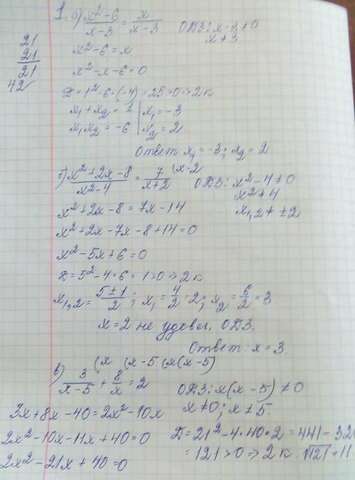 1. а) x²-6 / x-3 = x / x-3   ОДЗ: x-3≠0
x≠3
x²-6=x
x²-x-6=0
21
21
21
42
D=1²-6·(-4)=25>0 ⇒ 2к
x₁+x₂=1 | x₁=-3
x₁x₂=-6 | x₂=2
Ответ x₁=-3; x₂=2
б) x²+2x-8 / x²-4 = 7 / x+2 (x-2   ОДЗ: x²-4≠0
x²≠4
x₁,₂≠±2
x²+2x-8=7x-14
x²+2x-7x-8+14=0
x²-5x+6=0
D=5²-4·6=1>0 ⇒ 2к
x₁,₂=5±1 / 2; x₁=4/2=2; x₂=6/2=3
x=2 не удовл. ОДЗ.
Ответ: x=3
в) 3 / x-5 (x + 8 / x (x-5 = 2 (x(x-5)   ОДЗ: x(x-5)≠0
x≠0; x≠5
3x+8x-40=2x²-10x
2x²-10x-11x+40=0
2x²-21x+40=0
D=21²-4·40·2=441-320
=121>0 ⇒ 2к √121=11